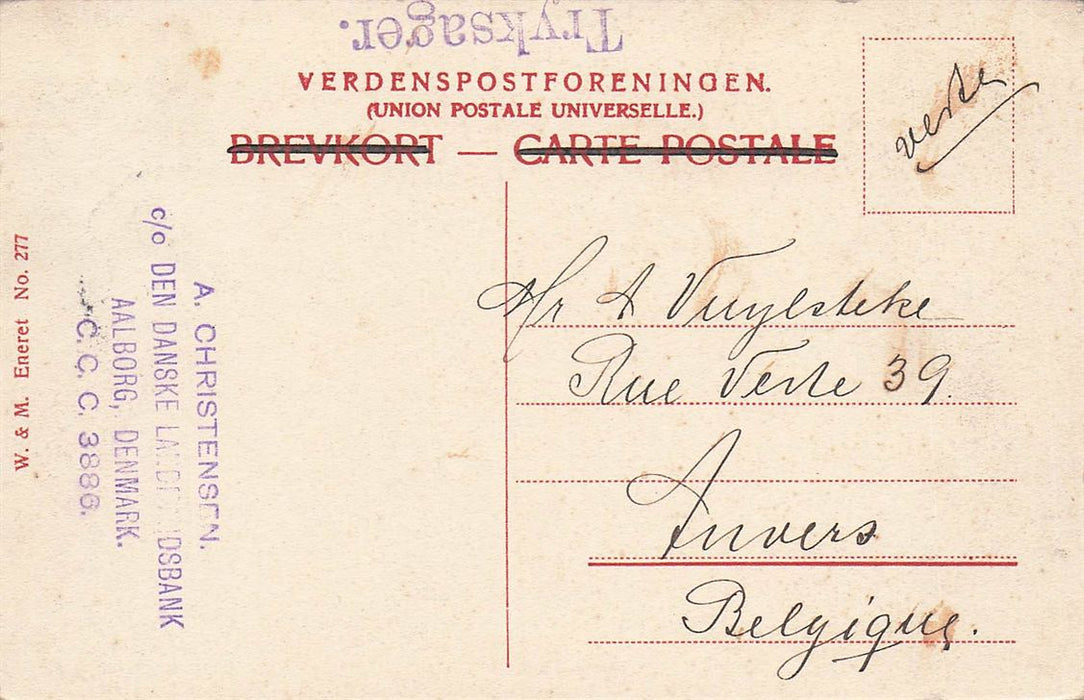 Tryksager.
VERDENSPOSTFORENINGEN.
(UNION POSTALE UNIVERSELLE.)
BREVKORT — CARTE POSTALE
verte
Mr A Vuylsteke
Rue Verte 39.
Anvers
Belgique.
A. CHRISTENSEN.
c/o DEN DANSKE
AALBORG, DENMARK.
C. C. C. 3886.
W. & M. Eneret No. 277